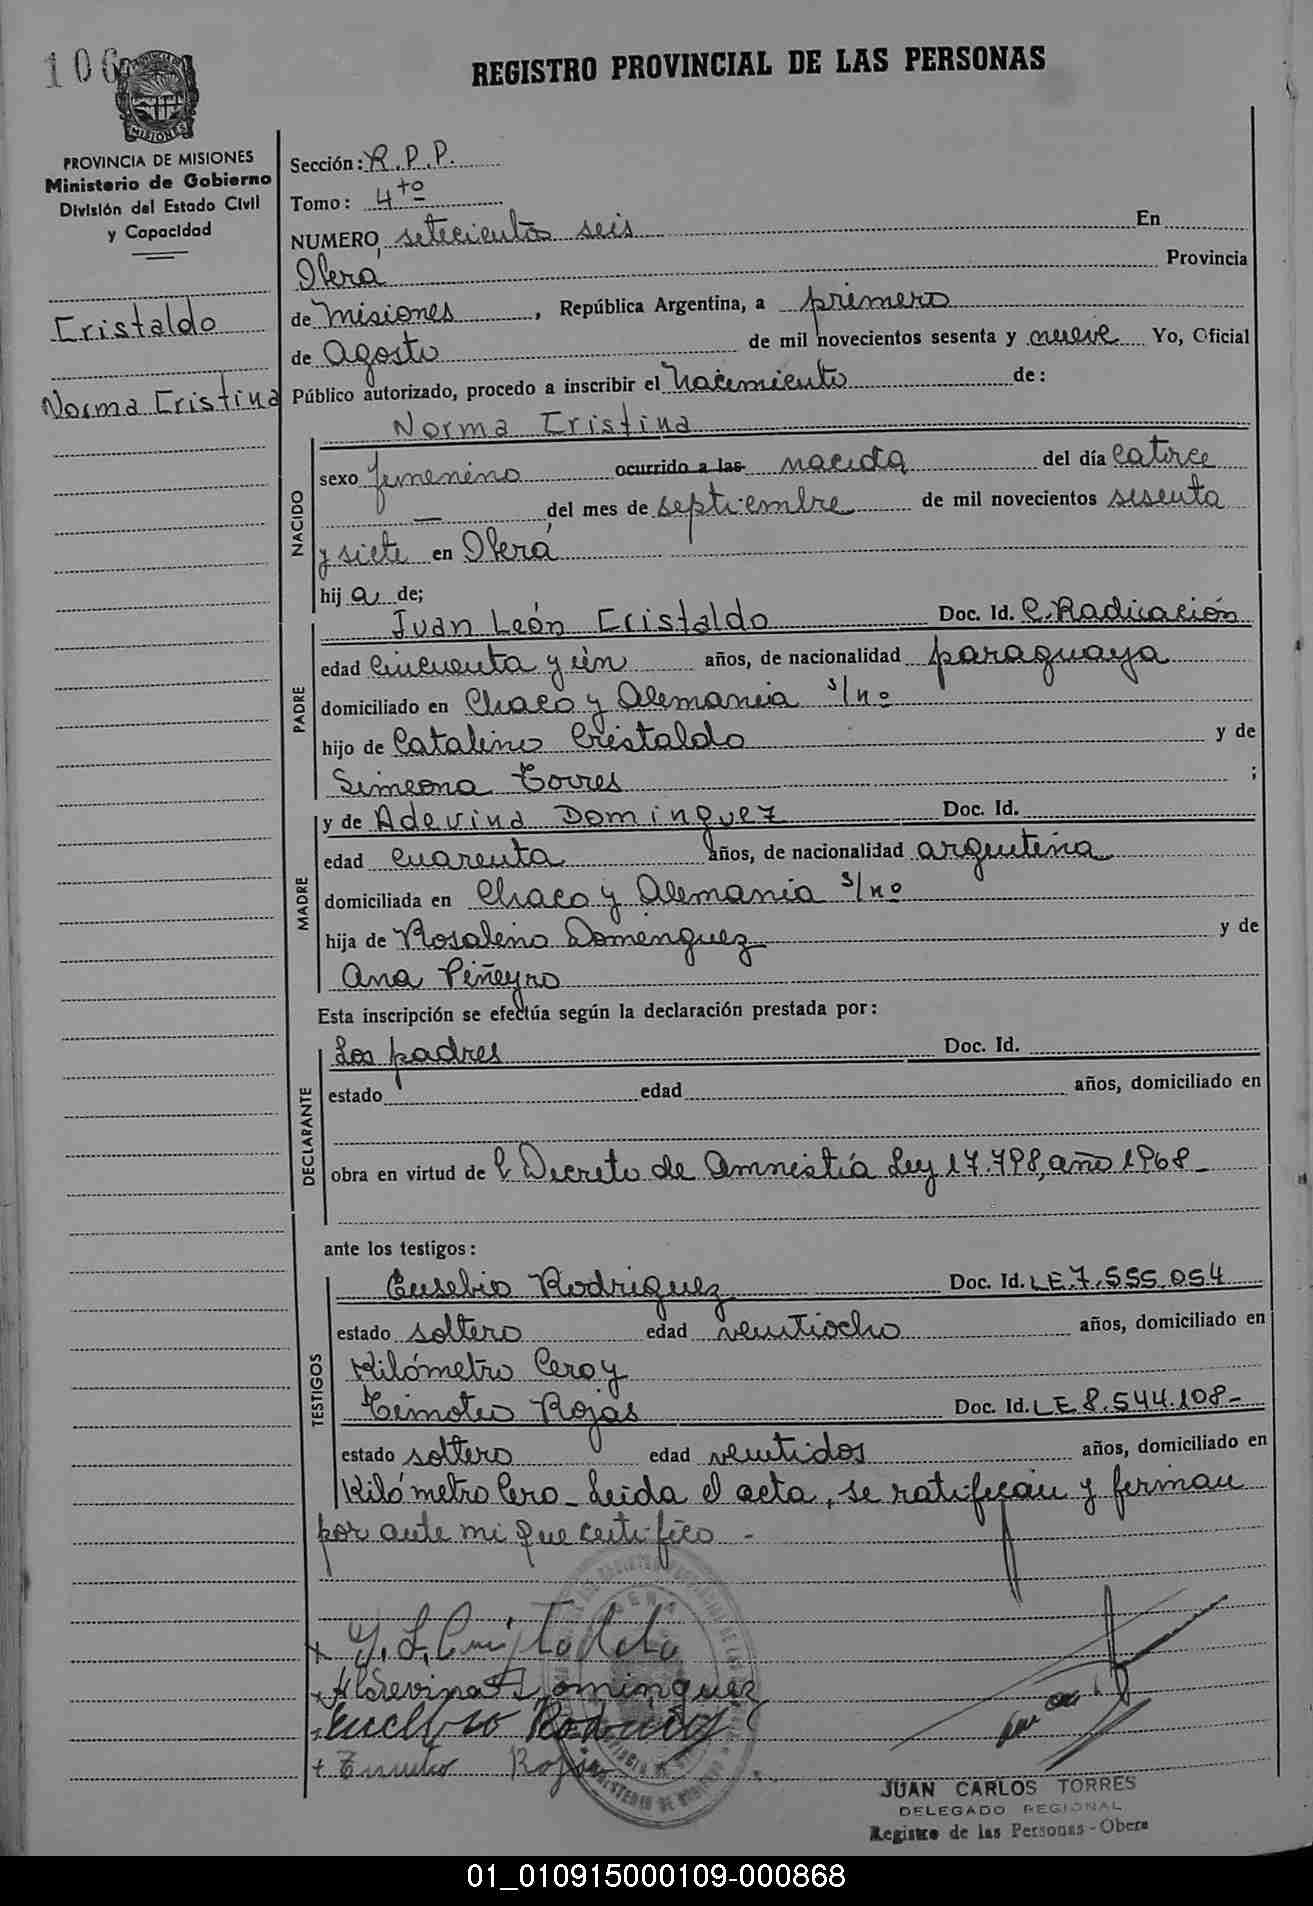 106
REGISTRO PROVINCIAL DE LAS PERSONAS
MISIONES
PROVINCIA DE MISIONES
Ministerio de Gobierno
División del Estado Civil
y Capacidad
Cristaldo
Norma Cristina
Sección: R.P.P.
Tomo: 4to
NUMERO setecientos seis En
Oberá Provincia
de Misiones, República Argentina, a primero
de Agosto de mil novecientos sesenta y nueve Yo, Oficial
Público autorizado, procedo a inscribir el Nacimiento de:
NACIDO
Norma Cristina
sexo femenino ocurrido a las nacida del día catorce
— del mes de septiembre de mil novecientos sesenta
y siete en Oberá
hij a de;
PADRE
Juan León Cristaldo Doc. Id. C. Radicación
edad cincuenta y un años, de nacionalidad paraguaya
domiciliado en Chaco y Alemania s/nº
hijo de Catalino Cristaldo y de
Simeona Torres ;
MADRE
y de Adevina Dominguez Doc. Id.
edad cuarenta años, de nacionalidad argentina
domiciliada en Chaco y Alemania s/nº
hija de Rosalino Domenguez y de
Ana Piñeyro
Esta inscripción se efectúa según la declaración prestada por:
DECLARANTE
Los padres Doc. Id.
estado edad años, domiciliado en
obra en virtud de l Decreto de Amnistía Ley 17.798, año 1968-
ante los testigos:
TESTIGOS
Eusebio Rodriguez Doc. Id. LE 7.555.054
estado soltero edad veintiocho años, domiciliado en
Kilómetro Cero y
Timoteo Rojas Doc. Id. LE 8.544.108-
estado soltero edad veintidos años, domiciliado en
Kilómetro Cero - Leida el acta, se ratifican y firman
por ante mi que certifico -
J. L. Cristaldo
Dominguez
Rodriguez
Rojas
JUAN CARLOS TORRES
DELEGADO REGIONAL
Registro de las Personas - Obera
01_010915000109-000868